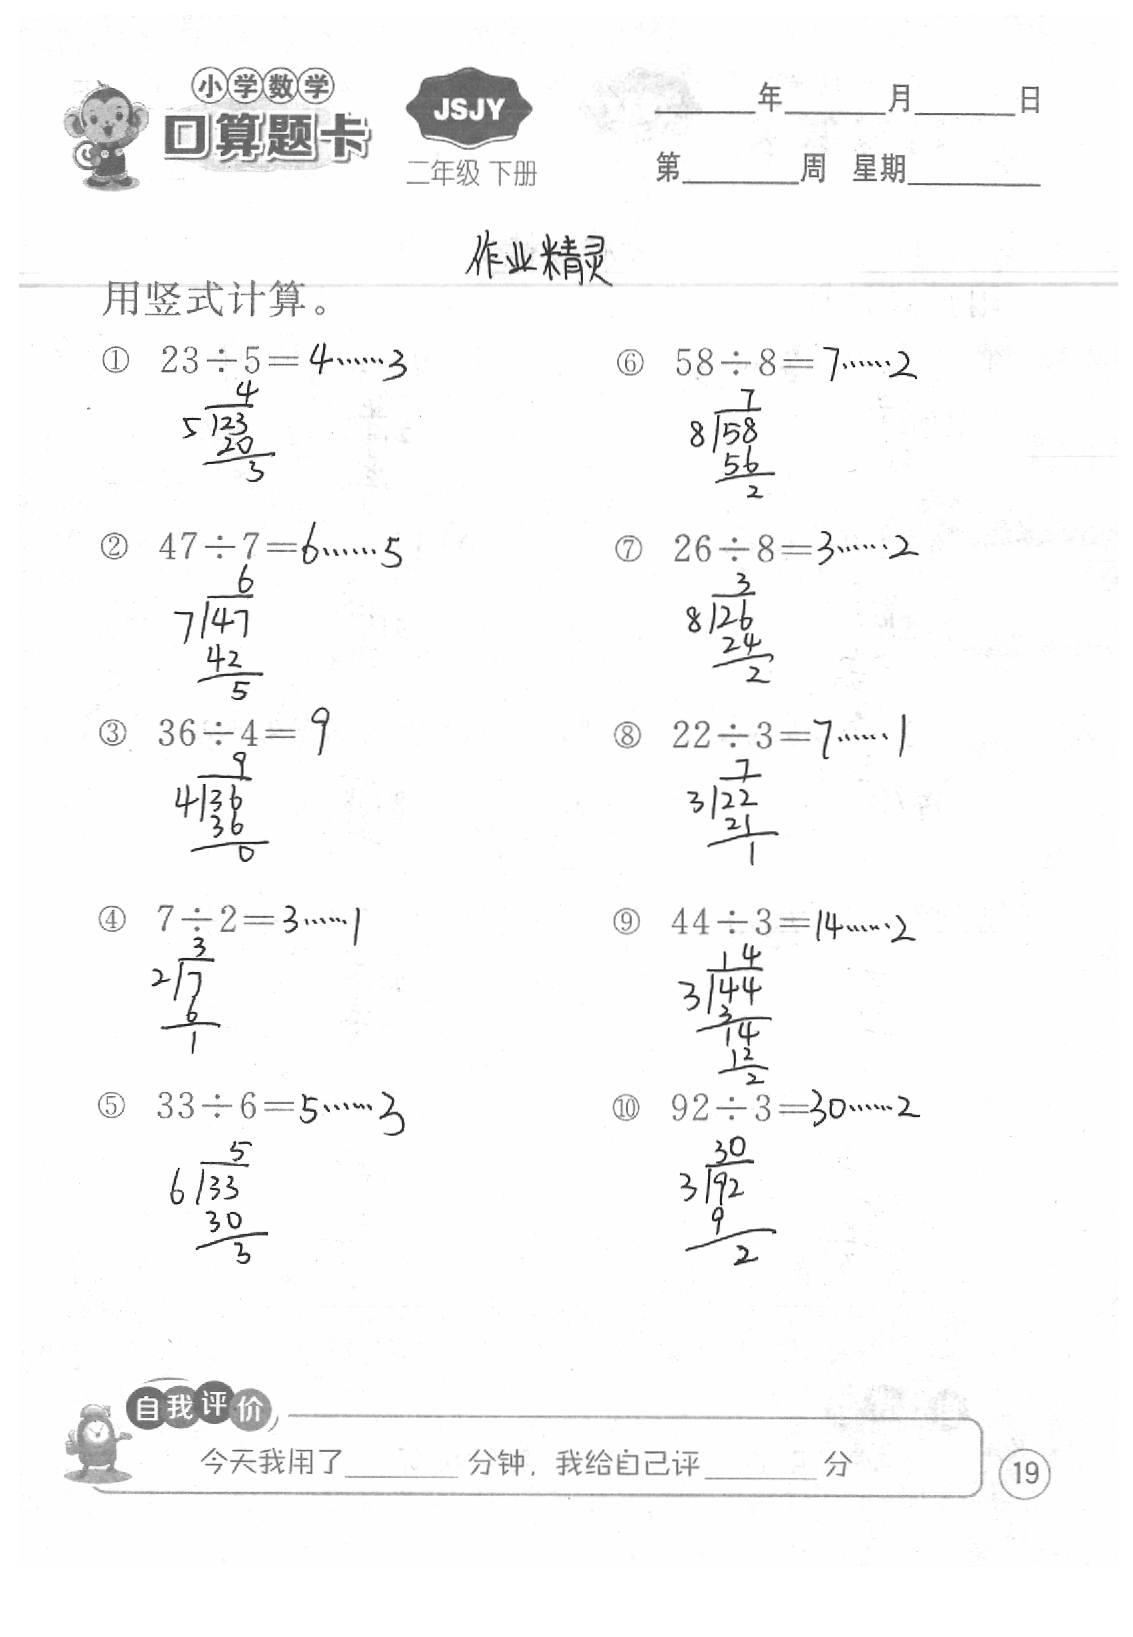 小学数学
口算题卡
JSJY
二年级 下册
____年____月____日
第____周 星期____
作业精灵
用竖式计算。
① 23÷5=4……3
4
5 23
20
3
② 47÷7=6……5
6
7 47
42
5
③ 36÷4=9
9
4 36
36
0
④ 7÷2=3……1
3
2 7
6
1
⑤ 33÷6=5……3
5
6 33
30
3
⑥ 58÷8=7……2
7
8 58
56
2
⑦ 26÷8=3……2
3
8 26
24
2
⑧ 22÷3=7……1
7
3 22
21
1
⑨ 44÷3=14……2
14
3 44
3
14
12
2
⑩ 92÷3=30……2
30
3 92
9
2
自我评价
今天我用了____分钟，我给自己评____分
19